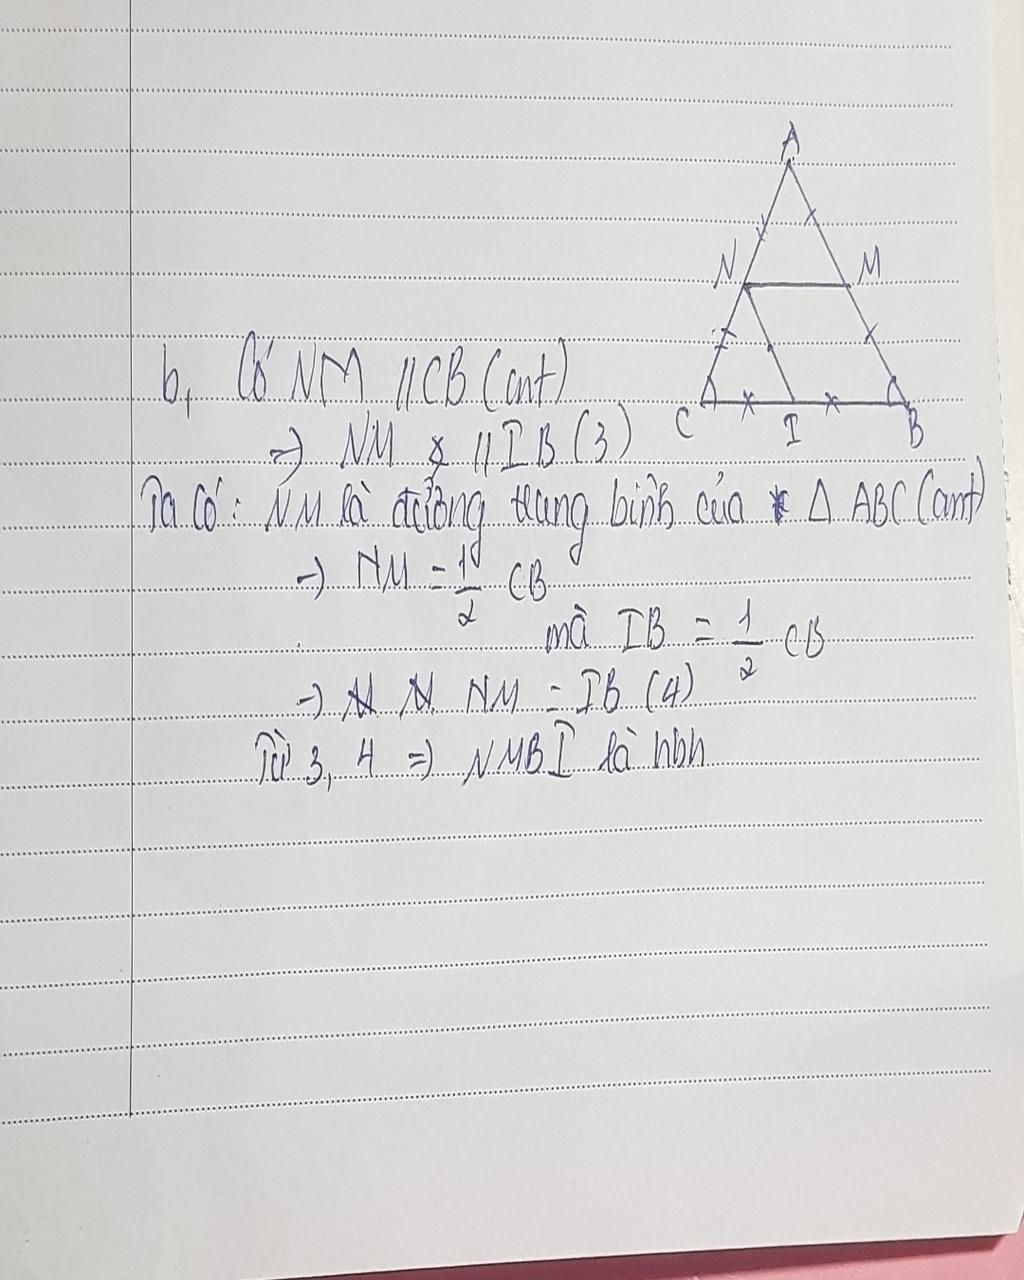 A
N M
C I B
b, Có NM // CB (cmt)
=> NM // IB (3)
Ta Có: NM là đường trung bình của Δ ABC (cmt)
=> NM = 1/2 CB
mà IB = 1/2 CB
=> NM = IB (4)
Từ 3, 4 => NMBI là hbh